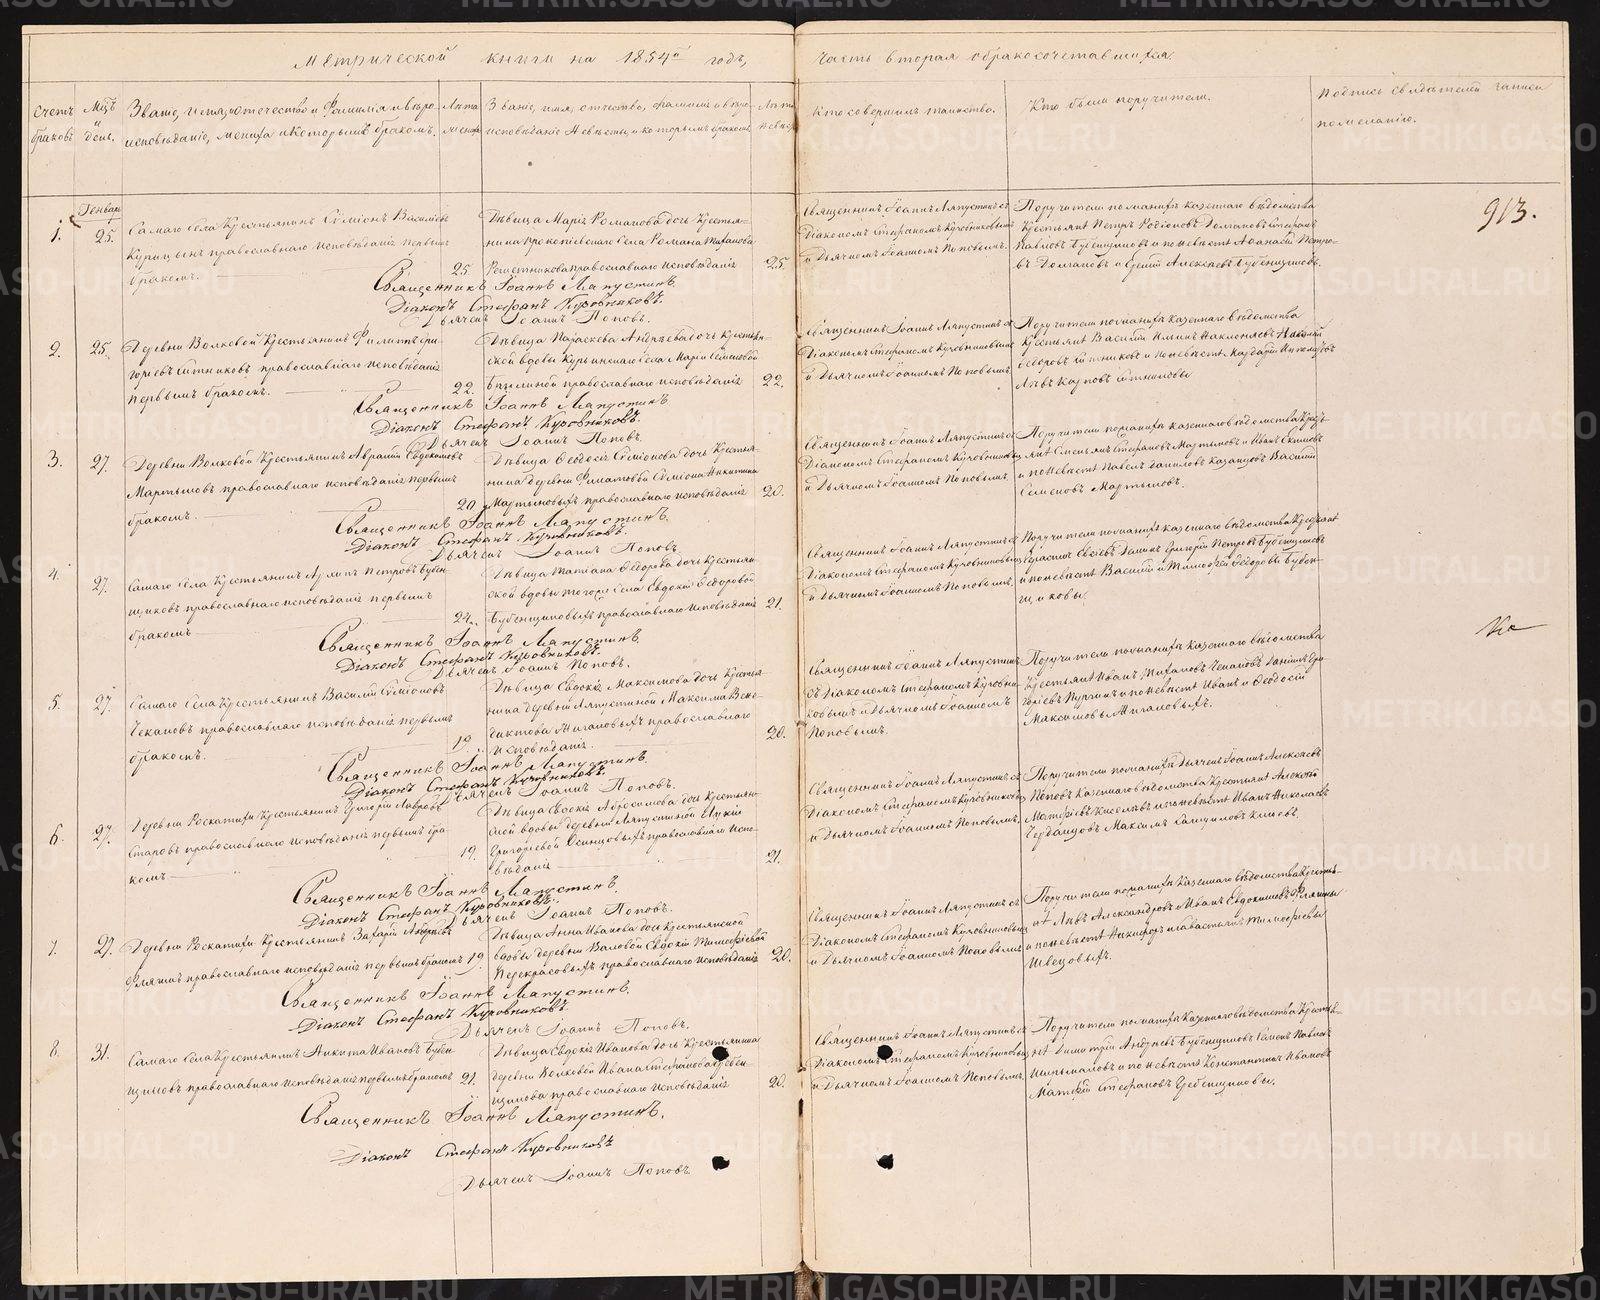 Метрической книги на 1854й годъ,
часть вторая о бракосочетавшихся.
Счетъ браковъ
Мцъ и день.
Званіе, имя, отечество и Фамилія и вѣро-
исповѣданіе, жениха и которымъ бракомъ.
Лѣта жениха
Званіе, имя, отчество, фамилія и вѣро-
исповѣданіе невѣсты, и которымъ бракомъ
Лѣта невѣсты
Кто совершилъ таинство.
Кто были поручители.
Подпись свидѣтелей записи
по желанію.
Генварь
1.
25.
Самаго села Крестьянинъ Симіонъ Васильевъ
Курицынъ православнаго исповѣданія первымъ
бракомъ.
25
Дѣвица Марія Романова дочь Крестья-
нина Прокопіевскаго села Романа
Решетникова православнаго исповѣданія
25.
Священникъ Іоаннъ Ляпустинъ съ
Діакономъ Стефаномъ Куровниковымъ
и Дьячкомъ Іоанномъ Поповымъ.
Поручители по женихѣ казеннаго вѣдомства
Крестьяне Петръ Родіоновъ Долматовъ Стефанъ
Павловъ Бубенщиковъ и по невѣстѣ Афанасій Петро-
въ Долматовъ и Сергій Алексѣевъ Бубенщиковъ.
913.
Священникъ Іоаннъ Ляпустинъ.
Діаконъ Стефанъ Куровниковъ.
Дьячекъ Іоаннъ Поповъ.
2.
25.
Деревни Волковой Крестьянинъ Филиппъ Гри-
горьевъ Ситниковъ православнаго исповѣданія
первымъ бракомъ.
22.
Дѣвица Параскева Андреева дочь Крестьян-
ской вдовы Курьинскаго села Маріи Семеновой
православнаго исповѣданія
22.
Священникъ Іоаннъ Ляпустинъ съ
Діакономъ Стефаномъ Куровниковымъ
и Дьячкомъ Іоанномъ Поповымъ
Поручители по женихѣ казеннаго вѣдомства
Крестьяне Василій
Ѳедоровъ Ситниковъ и по невѣстѣ
Левъ Карповъ Ситниковы
Священникъ Іоаннъ Ляпустинъ
Діаконъ Стефанъ Куровниковъ.
Дьячекъ Іоаннъ Поповъ.
3.
27.
Деревни Волковой Крестьянинъ Авраамій Евдокимовъ
Мартыновъ православнаго исповѣданія первымъ
бракомъ.
20
Дѣвица Ѳеодосія Симіонова дочь Крестья-
нина деревни Филатовой Симіона Никитина
Мартыновыхъ православнаго исповѣданія
20.
Священникъ Іоаннъ Ляпустинъ съ
Діакономъ Стефаномъ Куровниковымъ
и Дьячкомъ Іоанномъ Поповымъ.
Поручители по женихѣ казеннаго вѣдомства Кресть-
яне Стефановъ Мартыновъ и Иванъ
и по невѣстѣ Павелъ Даниловъ Казанцовъ Василій
Семеновъ Мартыновъ.
Священникъ Іоаннъ Ляпустинъ.
Діаконъ Стефанъ Куровниковъ.
Дьячекъ Іоаннъ Поповъ
4.
27.
Самаго села Крестьянинъ Архипъ Петровъ Бубен-
щиковъ православнаго исповѣданія первымъ
бракомъ
24.
Дѣвица Татіана Ѳедорова дочь Крестьян-
ской вдовы того же села Евдокіи Ѳедоровой
Бубенщиковыхъ православнаго исповѣданія
21.
Священникъ Іоаннъ Ляпустинъ съ
Діакономъ Стефаномъ Куровниковымъ
и Дьячкомъ Іоанномъ Поповымъ.
Поручители по женихѣ казеннаго вѣдомства Крестьяне
Григорій Петровъ Бубенщиковъ
и по невѣстѣ Василій и Тимофей Ѳедоровы Бубен-
щиковы.
Священникъ Іоаннъ Ляпустинъ.
Діаконъ Стефанъ Куровниковъ.
Дьячекъ Іоаннъ Поповъ.
5.
27.
Самаго села Крестьянинъ Василій Симіоновъ
Чекановъ православнаго исповѣданія первымъ
бракомъ.
19.
Дѣвица Евдокія Максимова дочь Крестья-
нина деревни Ляпустиной Максима Вене-
диктова Жигаловыхъ православнаго
исповѣданія.
20.
Священникъ Іоаннъ Ляпустинъ
съ Діакономъ Стефаномъ Куровни-
ковымъ и Дьячкомъ Іоанномъ
Поповымъ.
Поручители по женихѣ казеннаго вѣдомства
Крестьяне Иванъ Михаиловъ Чекановъ Даніилъ Гри-
горьевъ и по невѣстѣ Иванъ и Ѳеодосій
Максимовы Жигаловыхъ.
Священникъ Іоаннъ Ляпустинъ.
Діаконъ Стефанъ Куровниковъ.
Дьячекъ Іоаннъ Поповъ.
6.
27.
Деревни Роскатихи Крестьянинъ Григорій Лавровъ
Старовъ православнаго исповѣданія первымъ бра-
комъ
19.
Дѣвица Евдокія Абросимова дочь Крестьян-
ской вдовы деревни Ляпустиной
Григорьевой Осинцовыхъ православнаго испо-
вѣданія
21.
Священникъ Іоаннъ Ляпустинъ съ
Діакономъ Стефаномъ Куровниковымъ
и Дьячкомъ Іоанномъ Поповымъ.
Поручители по женихѣ Дьячекъ Іоаннъ Алексѣевъ
Поповъ казеннаго вѣдомства Крестьяне Алексѣй
Матфѣевъ Киселевъ и по невѣстѣ Иванъ Николаевъ
Чердынцовъ Максимъ
Священникъ Іоаннъ Ляпустинъ.
Діаконъ Стефанъ Куровниковъ.
Дьячекъ Іоаннъ Поповъ.
7.
27.
Деревни Роскатихи Крестьянинъ Захарій
православнаго исповѣданія первымъ бракомъ
19.
Дѣвица Анна Иванова дочь Крестьянской
вдовы деревни Валовой Евдокіи Тимофѣевой
Перекрасовыхъ православнаго исповѣданія
20.
Священникъ Іоаннъ Ляпустинъ съ
Діакономъ Стефаномъ Куровниковымъ
и Дьячкомъ Іоанномъ Поповымъ
Поручители по женихѣ казеннаго вѣдомства Кресть-
яне Левъ Александровъ и Иванъ Евдокимовъ
и по невѣстѣ Никифоръ и Савастьянъ Тимофѣевы
Швецовыхъ.
Священникъ Іоаннъ Ляпустинъ.
Діаконъ Стефанъ Куровниковъ.
Дьячекъ Іоаннъ Поповъ.
8.
31.
Самаго села Крестьянинъ Никита Ивановъ Бубен-
щиковъ православнаго исповѣданія первымъ бракомъ
21.
Дѣвица Евдокія Иванова дочь Крестьянина
деревни Волковой Ивана Стефанова Гребен-
щикова православнаго исповѣданія
20.
Священникъ Іоаннъ Ляпустинъ съ
Діакономъ Стефаномъ Куровниковымъ
и Дьячкомъ Іоанномъ Поповымъ.
Поручители по женихѣ казеннаго вѣдомства Кресть-
яне Димитрій Андреевъ Бубенщиковъ Семенъ Павловъ
и по невѣстѣ Константинъ Ивановъ
Матфѣй Стефановъ Гребенщиковы.
Священникъ Іоаннъ Ляпустинъ.
Діаконъ Стефанъ Куровниковъ
Дьячекъ Іоаннъ Поповъ
METRIKI.GASO-URAL.RU